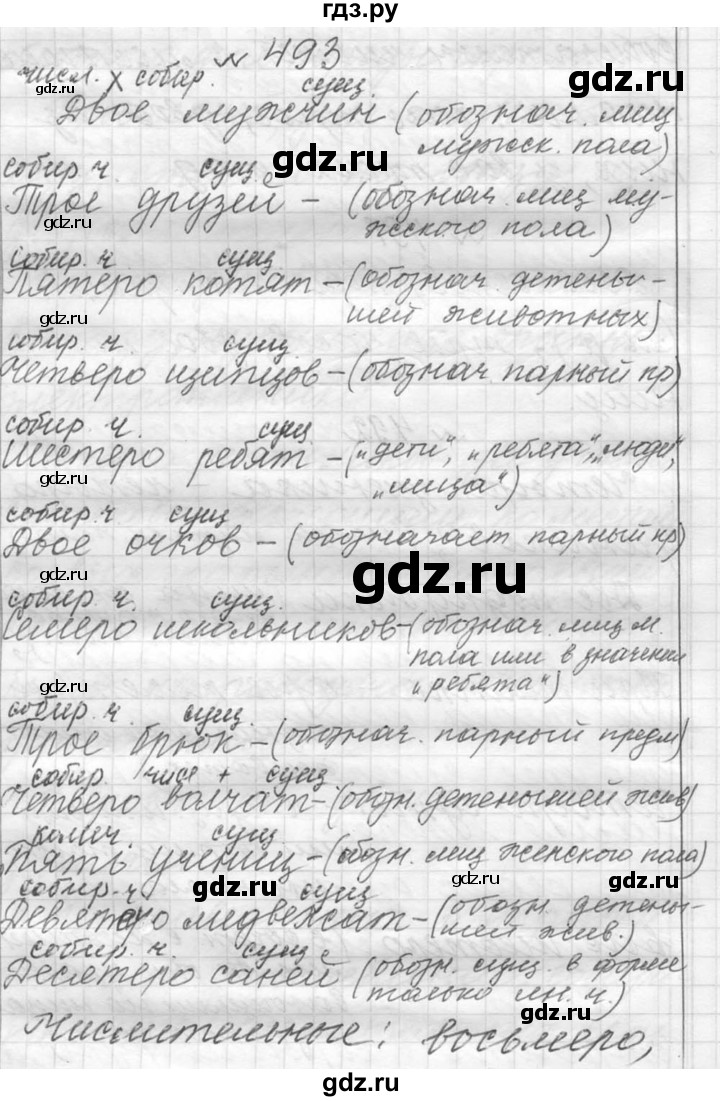 гдз.ру
№ 493
числ. х собир. сущ.
gdz.ru gdz.ru
Двое мужчин (обознач. лиц
мужск. пола)
собир. ч. сущ. gdz.ru
Трое друзей – (обознач. лиц му-
gdz.ru жского пола)
собир. ч. сущ.
Пятеро котят – (обознач. детены-
gdz.ru шей животных)
собир. ч. сущ.
Четверо щипцов – (обознач. парный пр)
собир. ч. сущ.
Шестеро ребят – („дети“, „ребята“, „люди“,
gdz.ru „лица“)
собир. ч сущ
Двое очков – (обозначает парный пр)
gdz.ru gdz.ru
собир. ч. сущ.
Семеро школьников – (обознач. лиц м.
пола или в значении
gdz.ru „ребята“)
собир. ч. сущ.
Трое брюк – (обознач. парный предм)
собир. числ + сущ
Четверо волчат – (обозн. детенышей жив)
колич. сущ
Пять учениц – (обозн. лиц женского пола)
собир. ч. gdz.ru сущ gdz.ru gdz.ru
Девятеро медвежат – (обозн. детены-
шей жив.)
собир. ч. сущ
Десятеро саней (обозн. сущ. в форме
gdz.ru только мн. ч.)
gdz.ru
Числительные: восьмеро,
gdz.ru
gdz.ru